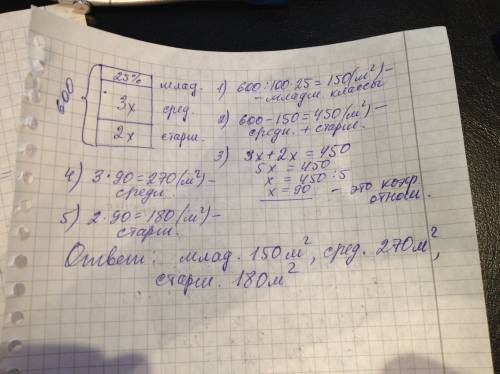 600
25% млад.
3х сред.
2х старш.
1) 600:100·25=150(м²)–
– младш. классы
2) 600–150=450(м²)–
средн. + старш.
3) 3х+2х=450
5х=450
х=450:5
х=90 – это коэф.
отнош.
4) 3·90=270(м²)–
средн.
5) 2·90=180(м²)–
старш.
Ответ: млад. 150м², сред. 270м²,
старш. 180м²